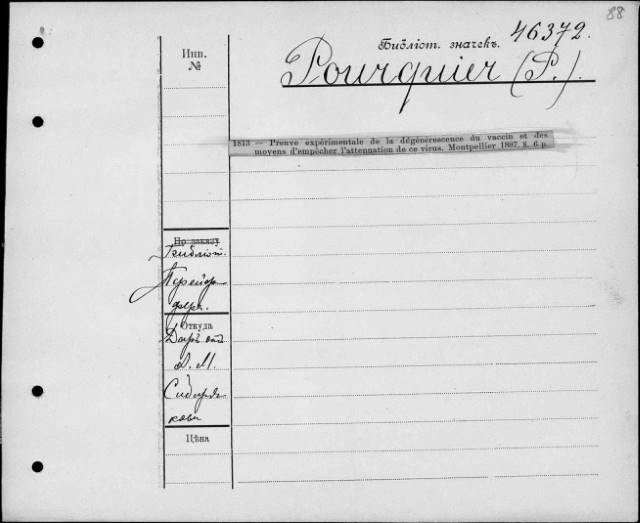 88
Библіот. значекъ. 46372.
Pourquier (P.).
Инв.
№
1813 — Preuve expérimentale de la dégénérescence du vaccin et des
moyens d'empêcher l'attenuation de ce virus. Montpellier 1887. 8. 6 p.
По заказу
Библіот.
Пфейф-
фера.
Откуда
Даръ отъ
А. М.
Сибиря-
кова
Цѣна